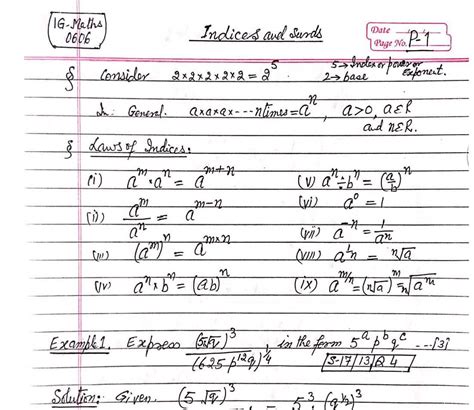 IG-Maths
0606
Indices and Surds
Date
Page No. P-1
§ Consider 2×2×2×2×2 = 2⁵. 5→Index or power or exponent.
2→base
In General. a×a×a×---n times = aⁿ, a>0, a∈R
and n∈R.
§ Laws of Indices:
(i) a^m × a^n = a^(m+n) (v) a^n ÷ b^n = (a/b)^n
(ii) a^m/a^n = a^(m-n) (vi) a^0 = 1
(iii) (a^m)^n = a^(m×n) (vii) a^-n = 1/a^n
(iv) a^n × b^n = (ab)^n (viii) a^(1/n) = ⁿ√a
(ix) a^(m/n) = (ⁿ√a)^m = ⁿ√a^m
Example 1. Express (5√q)^3/(625p^12 q)^(1/4), in the form 5^a p^b q^c ---[3]
S-17/13/Q4
Solution: Given, (5√q)^3 5^3 (q^(1/2))^3